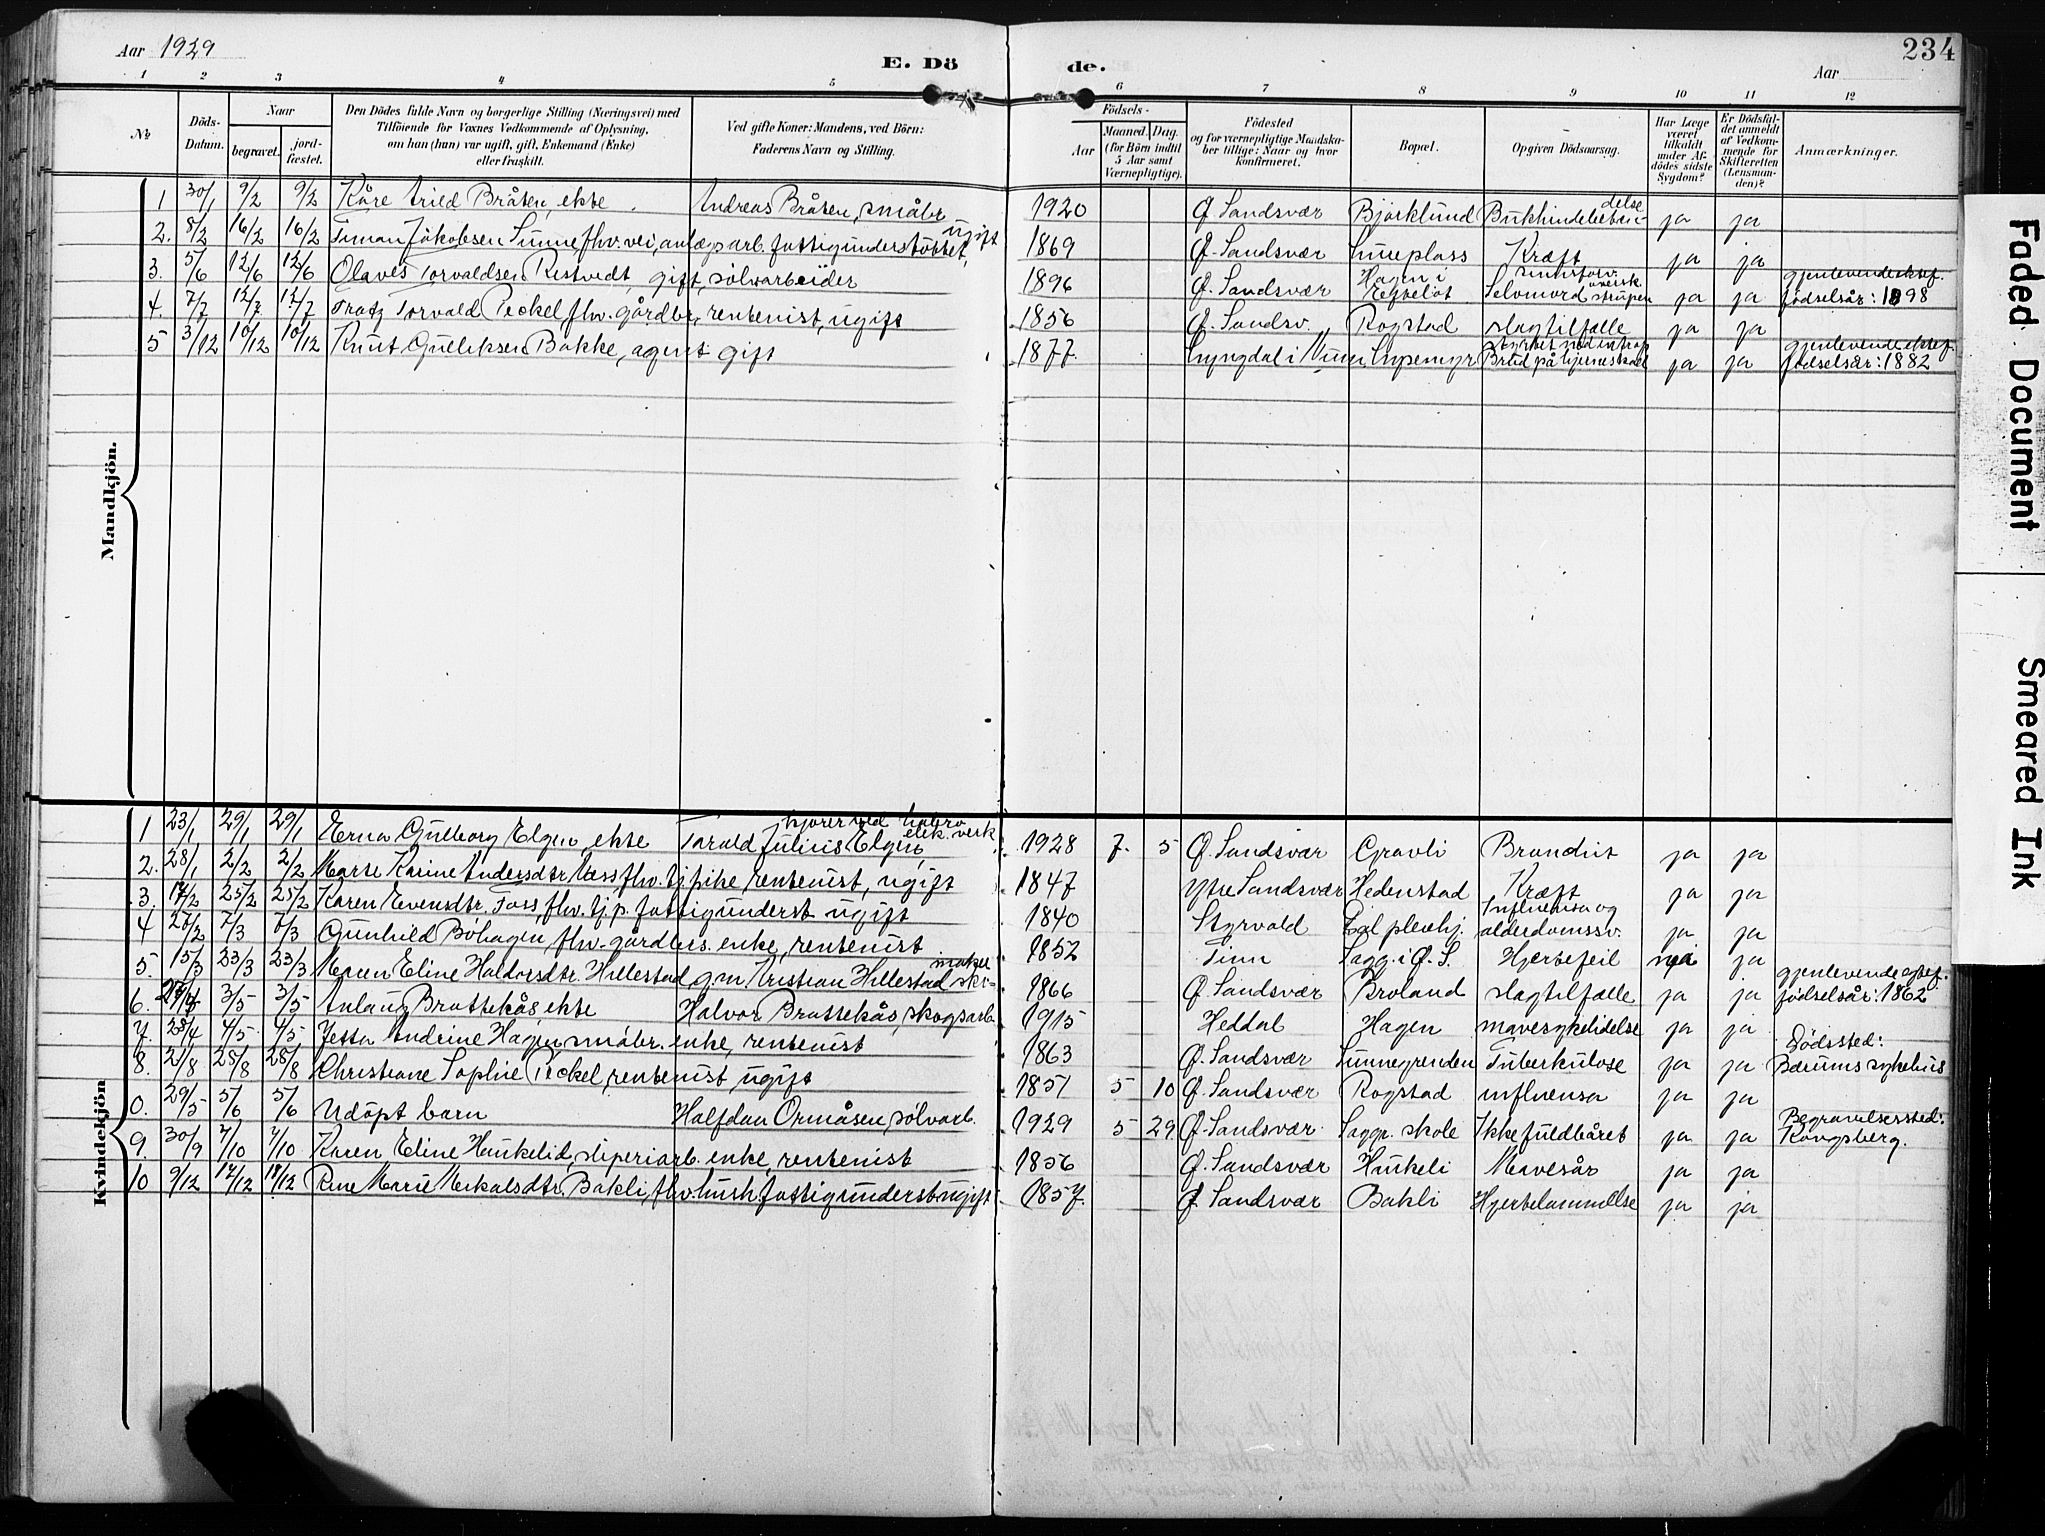 Aar 1929
E. Dö
de.
Aar
234
1 2 3 4 5 6 7 8 9 10 11 12
No
Döds-Datum.
Naar
begravet.
jordfæstet.
Den Dödes fulde Navn og borgerlige Stilling (Næringsvei) med
Tilföiende for Voxnes Vedkommende af Oplysning,
om han (hun) var ugift, gift, Enkemand (Enke)
eller fraskilt.
Ved gifte Koner: Mandens, ved Börn:
Faderens Navn og Stilling.
Födsels-
Aar
Maaned. Dag.
(for Börn indtil
5 Aar samt
Værnepligtige).
Födested
og for værnepligtige Mandskaber tillige: Naar og hvor
konfirmeret.
Bopæl.
Opgiven Dödsaarsag.
Har Læge
været
tilkaldt
under Afdödes sidste
Sygdom?
Er Dödsfaldet anmeldt
af Vedkommende for
Skifteretten
(Lensmanden)?
Anmærkninger.
Mandkjön.
1 30/1 9/2 9/2 Kåre Arild Bråten, ekte Andreas Bråten, småbr. 1920 Ø. Sandsvær Bjørklund ja ja
2. 8/2 16/2 16/2 Jakobsen fattigunderstöttet, ugift 1869 Ø. Sandsvær Kræft ja ja
3. 5/6 12/6 12/6 Olaves Torvaldsen Restvedt, gift, sølvarbeider 1896 Ø. Sandsvær Hagen i Selvmord ja ja gjenlevende ektef. fødselsår: 1898
4 7/7 12/7 12/7 Torvald Teckel fhv. gårdbr, rentenist, ugift 1856 Ø. Sandsv. Rogstad slagtilfælle ja ja
5 3/12 10/12 10/12 Knut Gulliksen Bakke, agent gift 1877 Lyngdal i Numd. Brud på hjerneskall ja ja gjenlevende ektef. fødselsår: 1882
Kvindekjön
1 23/1 29/1 29/1 Erna Gulborg Elgin, ekte Torald Julius Elgin, elek. verk 1928 7. 5 Ø. Sandsvær Gravli ja ja
2. 28/1 2/2 2/2 Marte Karine Andersdtr. fhv. tj. pike, rentenist, ugift 1847 Ytre Sandsvær Hedenstad Kræft ja ja
3. 17/2 25/2 25/2 Karen Evensdtr. Foss, fhv. tj.p. fattigunderst ugift 1840 Styrvold pleiehj. Influensa og alderdomssv. ja ja
4 7/3 7/3 Gunhild Böhagen, fhv. gårdbrs. enke, rentenist 1852 Tinn Sagg. i Ø. S. Hjertefeil ja
5. 15/3 23/3 23/3 Maren Eline Haldorsdtr. Hillestad, g.m. Kristian Hillestad skomaker 1866 Ø. Sandsvær Broland slagtilfælle ja ja gjenlevende egtef. fødselsår: 1862
6. 3/5 3/5 Brattekås, ekte Halvor Brattekås, skogsarb. 1915 Heddal Hagen mavesykelidelse ja ja
7. 28/4 4/5 4/5 Andrine Hagen, småbr. enke, rentenist 1863 Ø. Sandsvær Sunnegrenden Tuberkulose ja ja Dödssted: Bærums sykehus
8. 21/8 25/8 25/8 Christiane Sophie Teckel, rentenist ugift 1851 5 10 Ø. Sandsvær Rogstad influensa ja ja
0. 29/5 5/6 5/6 Udöpt barn Halfdan Ormåsen, sølvarb. 1929 5 29 Ø. Sandsvær Saggr. skole Ikke fuldbåret ja ja Begravelsessted: Kongsberg.
9. 30/9 7/10 7/10 Karen Eline Haukelid, sliperiarb. enke, rentenist 1856 Ø. Sandsvær Haukeli Mavesår ja ja
10 9/12 17/12 17/12 Marie Bakli, fhv. hush. fattigunderst. ugift 1857. Ø. Sandsvær Bakli Hjertelammelse ja ja
Faded Document
Smeared Ink